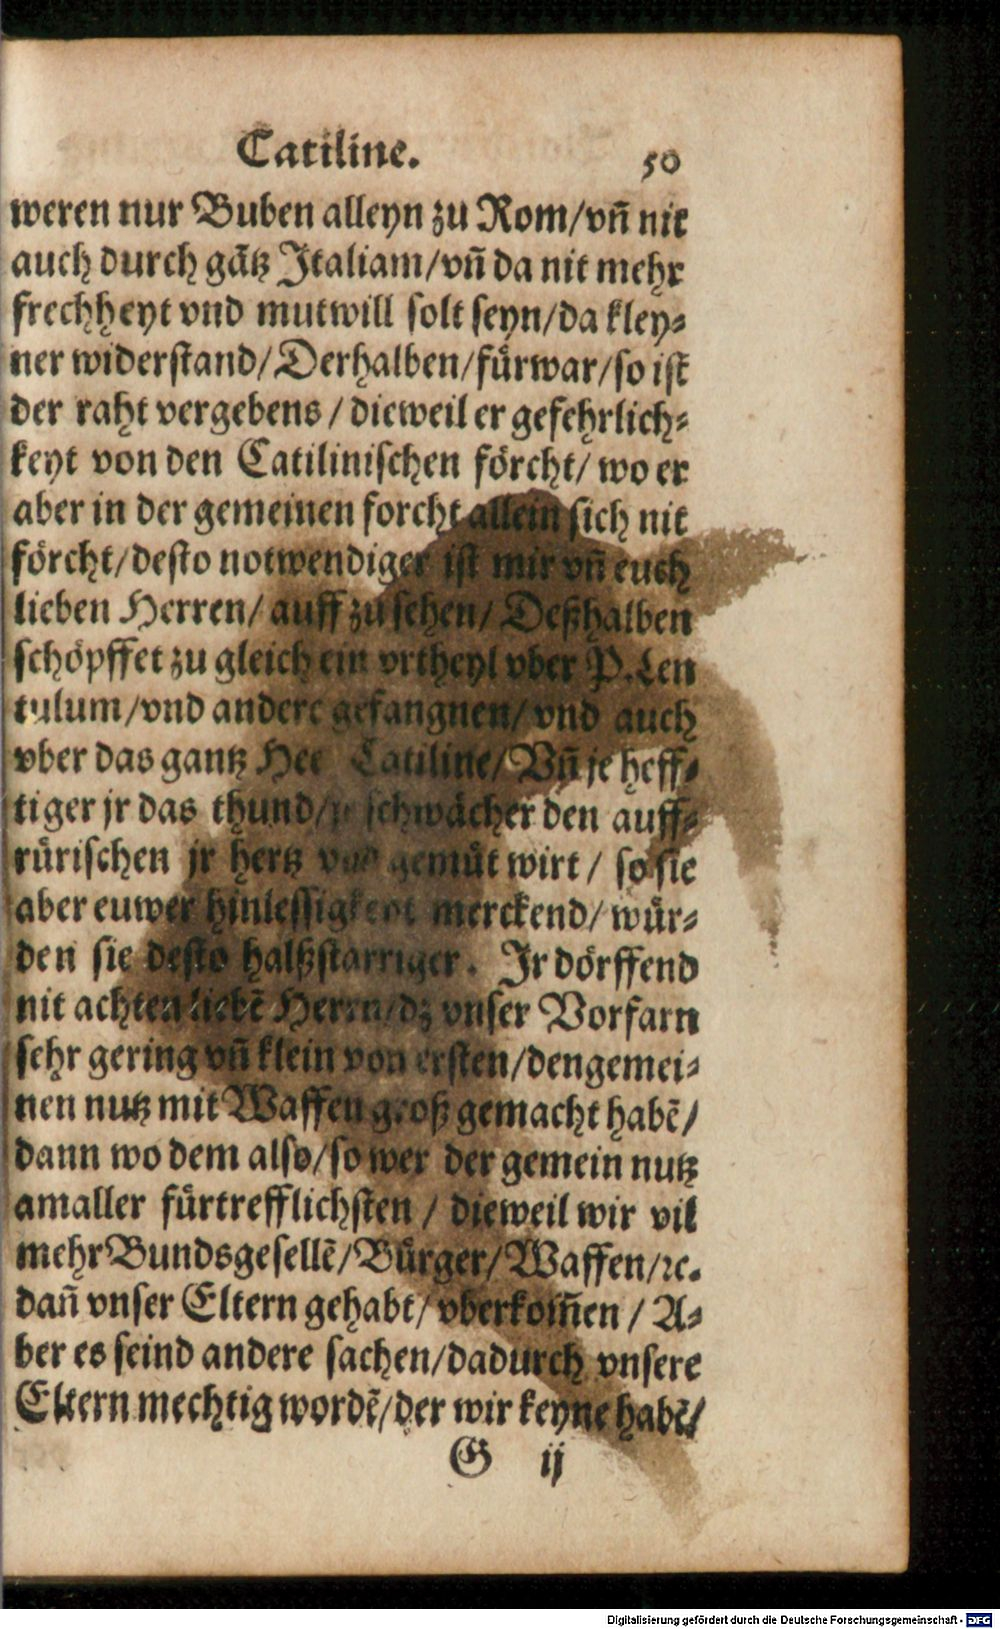 Catiline. 50
weren nur Buben alleyn zu Rom/vñ nit
auch durch gãtz Italiam/vñ da nit mehr
frechheyt vnd mutwill solt seyn/da kley⸗
ner widerstand/Derhalben/fürwar/so ist
der raht vergebens/dieweil er gefehrlich⸗
keyt von den Catilinischen förcht/wo er
aber in der gemeinen forcht allein sich nit
förcht/desto notwendiger ist mir vñ euch
lieben Herren/auff zu sehen/Deßhalben
schöpffet zu gleich ein vrtheyl vber P. Len
tulum/vnd andere gefangnen/vnd auch
vber das gantz Catiline/Vñ je heff⸗
tiger jr das thund/je schwächer den auff⸗
rürischen jr hertz vnd gemüt wirt/so sie
aber euwer hinlessigkeyt merckend/wür⸗
den sie desto halßstarriger. Ir dörffend
nit achten liebẽ Herrn/dz vnser Vorfarn
sehr gering vñ klein von ersten/dengemei⸗
nen nutz mit Waffen groß gemacht habẽ/
dann wo dem also/so wer der gemein nutz
amaller fürtrefflichsten/dieweil wir vil
mehr Bundsgesellẽ/Bürger/Waffen/ꝛc.
dañ vnser Eltern gehabt/vberkom̃en/A⸗
ber es seind andere sachen/dadurch vnsere
Eltern mechtig wordẽ/der wir keyne habẽ/
G ij
Digitalisierung gefördert durch die Deutsche Forschungsgemeinschaft - DFG